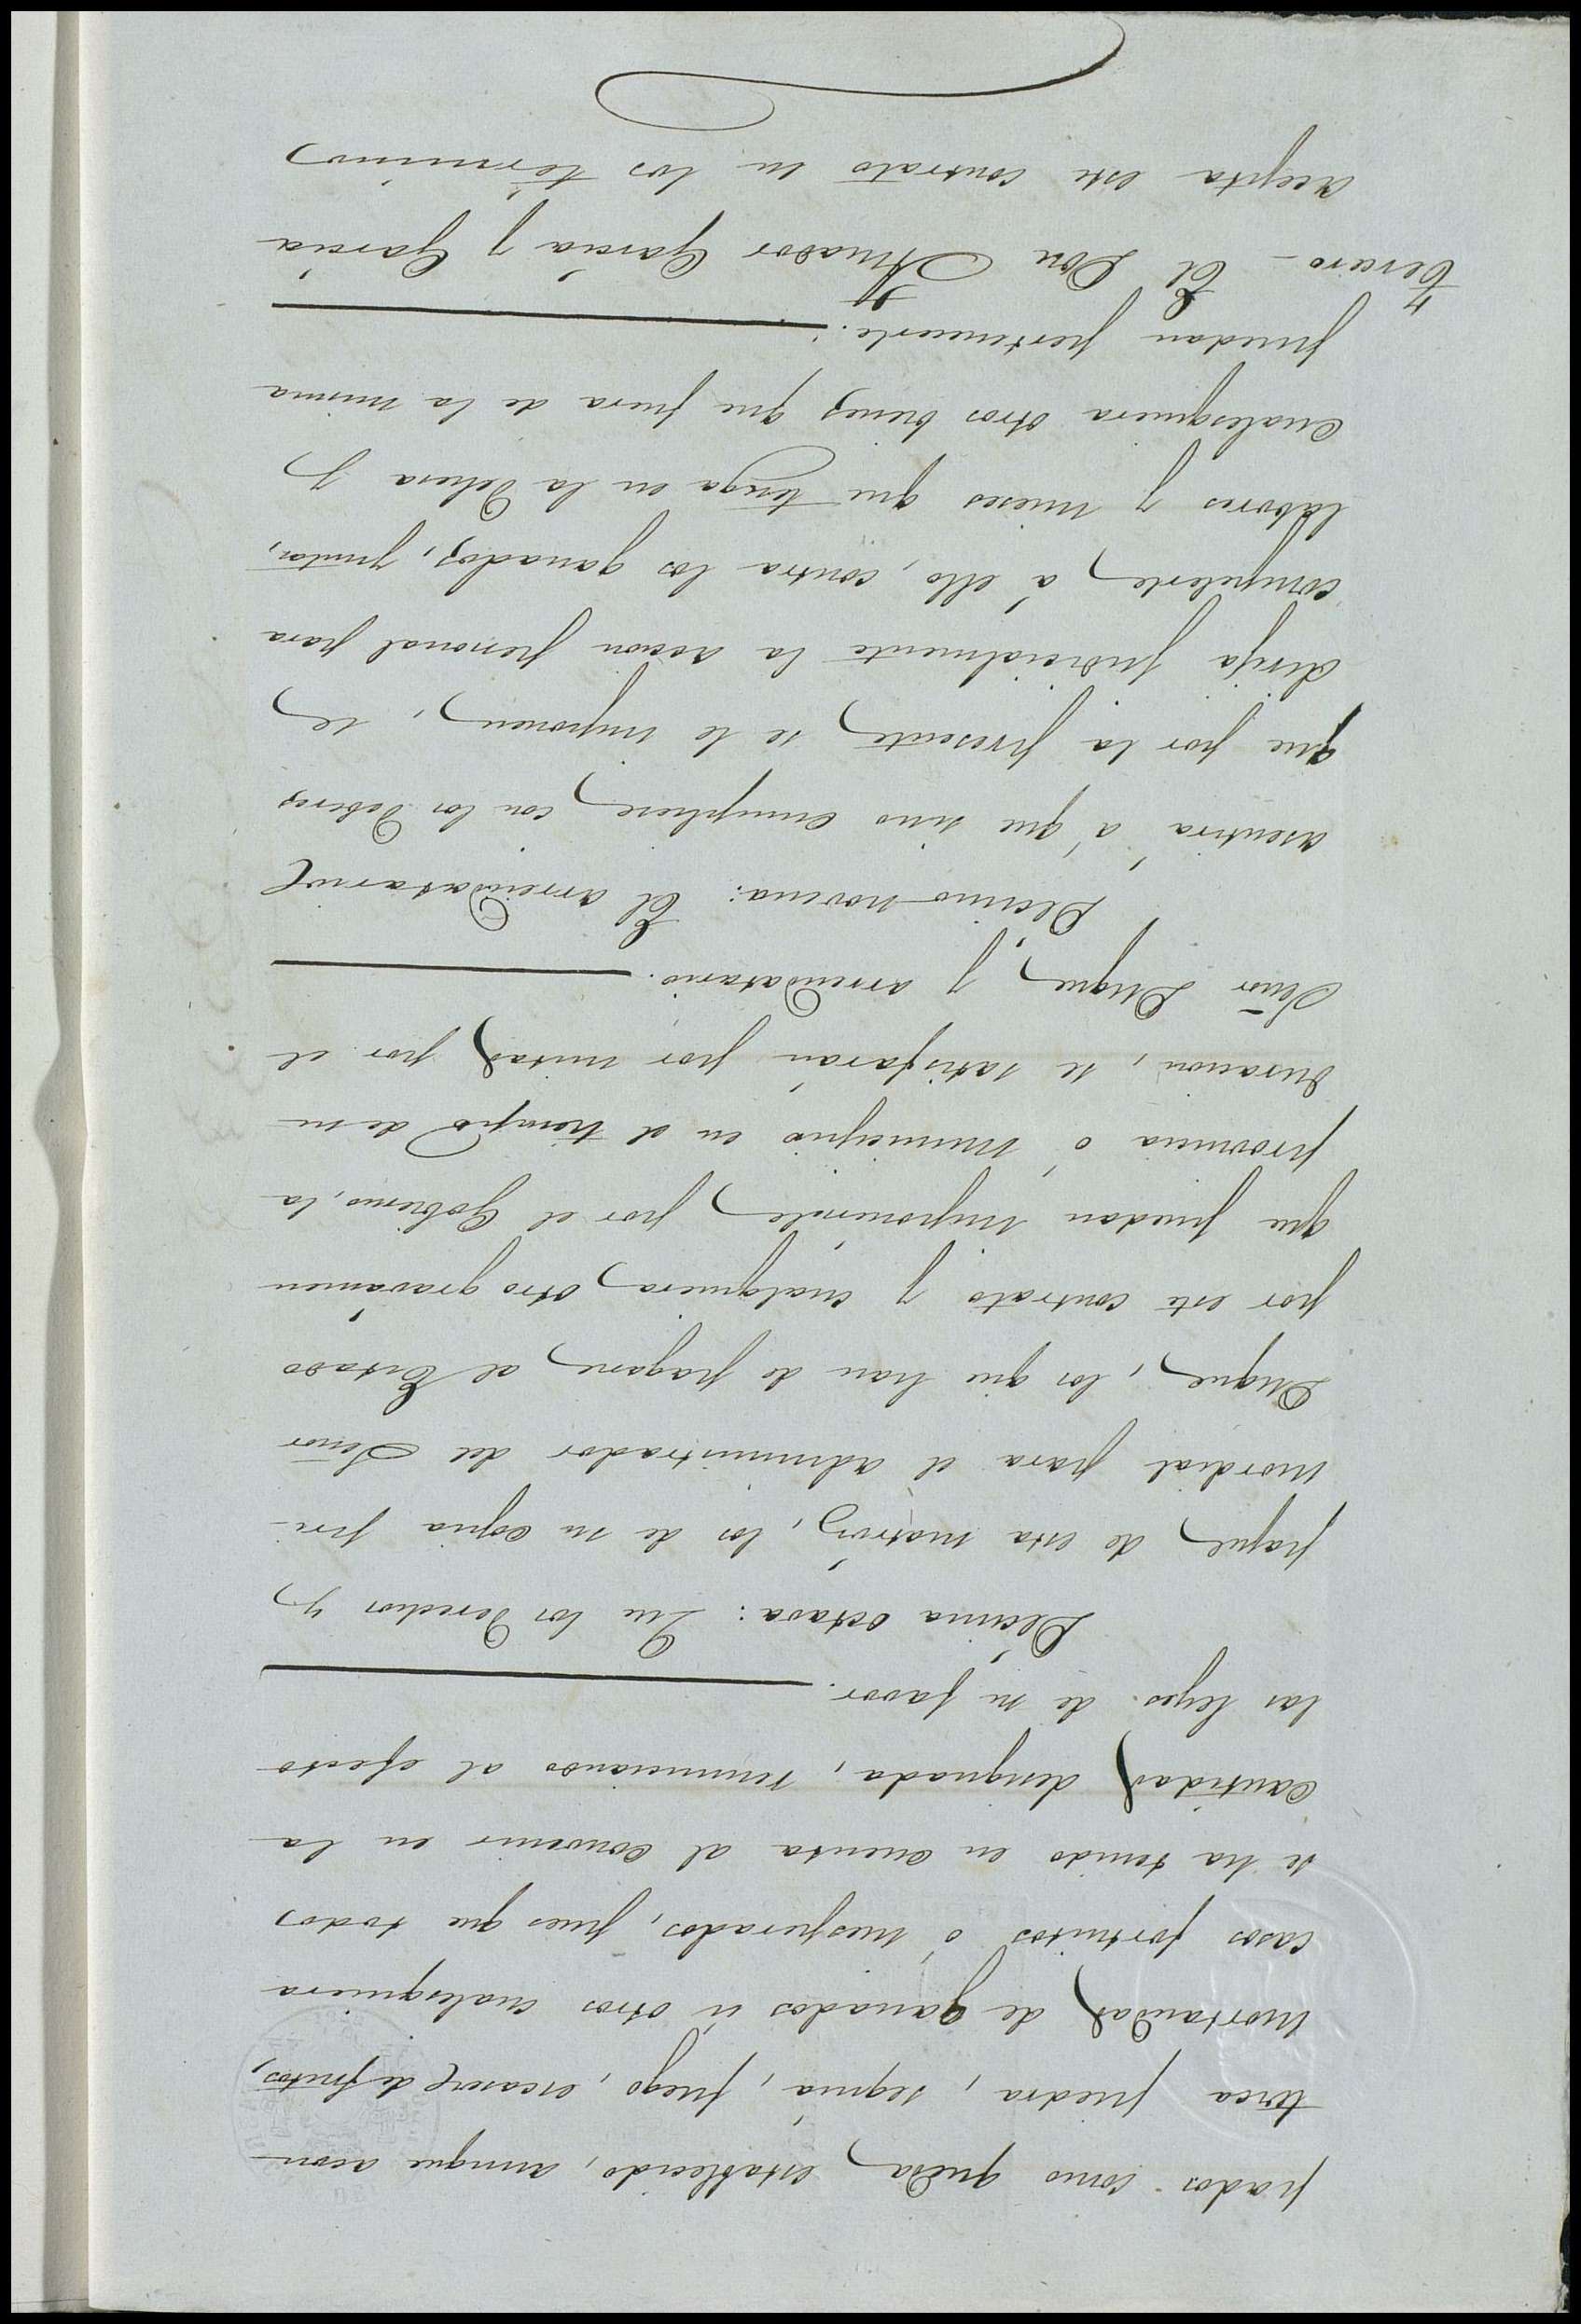 pados como queda establecido, aunque acon-
tezca piedra, sequia, fuego, escasez de frutos,
mortandad de ganados ú otros cualesquiera
casos fortuitos ó inesperados, pues que todos
se ha tenido en cuenta al convenir en la
cantidad designada, renunciando al efecto
las leyes de su favor.
Décima octava: Que los derechos y
papel de esta matriz, los de su copia pri-
mordial para el administrador del Señor
Duque, los que han de pagarse al Estado
por este contrato y cualquiera otro gravámen
que puedan imponérsele por el Gobierno, la
provincia ó municipio en el tiempo de su
duracion, se satisfarán por mitad por el
Señor Duque y arrendatario.
Décimo-novena: El arrendatario
asentirá á que sino cumpliese con los deberes
que por la presente se le imponen, se
dirija judicialmente la accion personal para
compelerle á ello, contra los ganados, frutos,
labores y mieses que tenga en la Dehesa y
cualesquiera otros bienes que fuera de la misma
puedan pertenecerle.
Tercero - El Don Amador García y García
acepta este contrato en los términos